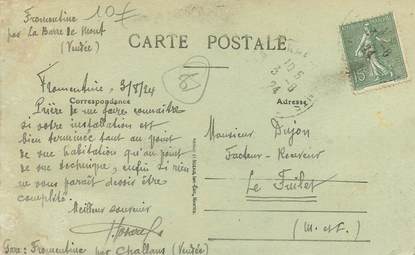 Fromentine 10F
par La Barre de Mont
(Vendée)
CARTE POSTALE
85
Fromentine, 3/8/24
Correspondance
Prière de me faire connaître
si votre installation est
bien terminée tant au point
de vue habitation qu'au point
de vue technique, enfin si rien
ne vous paraît devoir être
complété.
Meilleur souvenir
Gare: Fromentine par Challans (Vendée)
Adresse
Monsieur Dijon
Facteur-Receveur
Le Fuilet
(M.-et-L.)
15